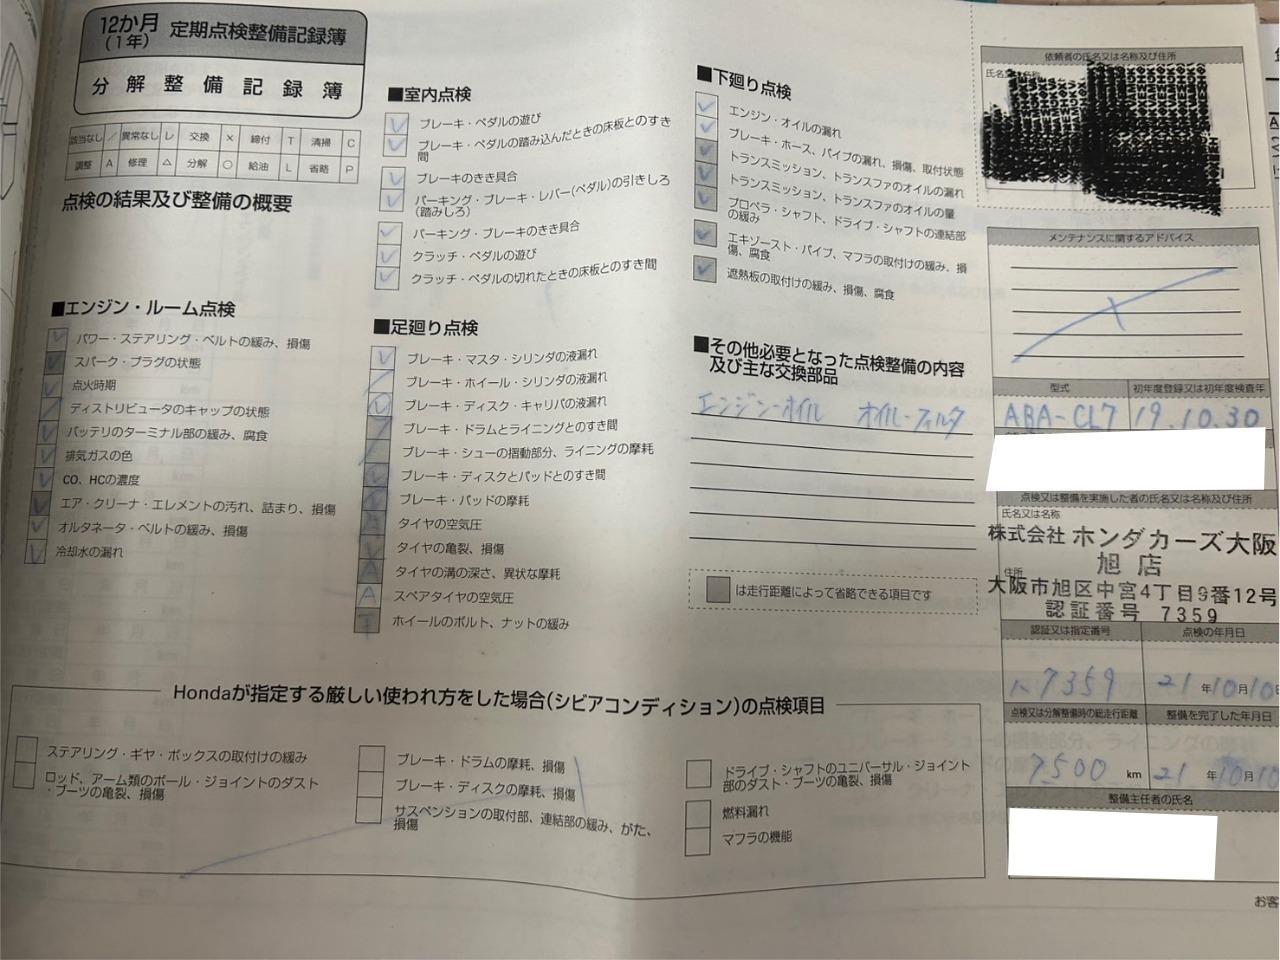 12か月
(1年)
定期点検整備記録簿
分解整備記録簿
該当なし ／ 異常なし レ 交換 × 締付 T 清掃 C
調整 A 修理 △ 分解 ○ 給油 L 省略 P
点検の結果及び整備の概要
■エンジン・ルーム点検
パワー・ステアリング・ベルトの緩み、損傷
スパーク・プラグの状態
点火時期
ディストリビュータのキャップの状態
バッテリのターミナル部の緩み、腐食
排気ガスの色
CO、HCの濃度
エア・クリーナ・エレメントの汚れ、詰まり、損傷
オルタネータ・ベルトの緩み、損傷
冷却水の漏れ
■室内点検
ブレーキ・ペダルの遊び
ブレーキ・ペダルの踏み込んだときの床板とのすき
間
ブレーキのきき具合
パーキング・ブレーキ・レバー(ペダル)の引きしろ
(踏みしろ)
パーキング・ブレーキのきき具合
クラッチ・ペダルの遊び
クラッチ・ペダルの切れたときの床板とのすき間
■足廻り点検
ブレーキ・マスタ・シリンダの液漏れ
ブレーキ・ホイール・シリンダの液漏れ
ブレーキ・ディスク・キャリパの液漏れ
ブレーキ・ドラムとライニングとのすき間
ブレーキ・シューの摺動部分、ライニングの摩耗
ブレーキ・ディスクとパッドとのすき間
ブレーキ・パッドの摩耗
タイヤの空気圧
タイヤの亀裂、損傷
タイヤの溝の深さ、異状な摩耗
A スペアタイヤの空気圧
T ホイールのボルト、ナットの緩み
■下廻り点検
エンジン・オイルの漏れ
ブレーキ・ホース、パイプの漏れ、損傷、取付状態
トランスミッション、トランスファのオイルの漏れ
トランスミッション、トランスファのオイルの量
プロペラ・シャフト、ドライブ・シャフトの連結部
の緩み
エキゾースト・パイプ、マフラの取付けの緩み、損
傷、腐食
遮熱板の取付けの緩み、損傷、腐食
■その他必要となった点検整備の内容
及び主な交換部品
エンジン-オイル オイル-フィルタ
は走行距離によって省略できる項目です
依頼者の氏名又は名称及び住所
氏名又は名称
メンテナンスに関するアドバイス
型式 初年度登録又は初年度検査年
ABA-CL7 19.10.30
点検又は整備を実施した者の氏名又は名称及び住所
氏名又は名称
株式会社 ホンダカーズ大阪
旭店
住所
大阪市旭区中宮4丁目9番12号
認証番号 7359
認証又は指定番号 点検の年月日
7359 21年10月10
点検又は分解整備時の総走行距離 整備を完了した年月日
7,500 km 21年10月10
整備主任者の氏名
Hondaが指定する厳しい使われ方をした場合(シビアコンディション)の点検項目
ステアリング・ギヤ・ボックスの取付けの緩み
ロッド、アーム類のボール・ジョイントのダスト
・ブーツの亀裂、損傷
ブレーキ・ドラムの摩耗、損傷
ブレーキ・ディスクの摩耗、損傷
サスペンションの取付部、連結部の緩み、がた、
損傷
ドライブ・シャフトのユニバーサル・ジョイント
部のダスト・ブーツの亀裂、損傷
燃料漏れ
マフラの機能
お客